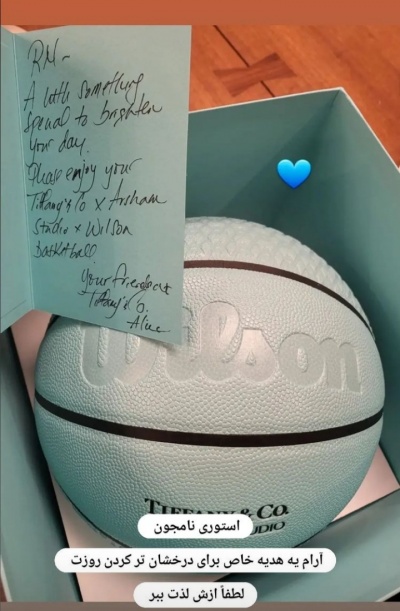 RM-
A little something
special to brighten
your day.
Please enjoy your
Tiffany & Co x Arsham
Studio x Wilson
basketball!
Your friends at
Tiffany & Co.
Wilson
TIFFANY & CO.
UDIO
استوری نامجون
آرام یه هدیه خاص برای درخشان تر کردن روزت
لطفاً ازش لذت ببر